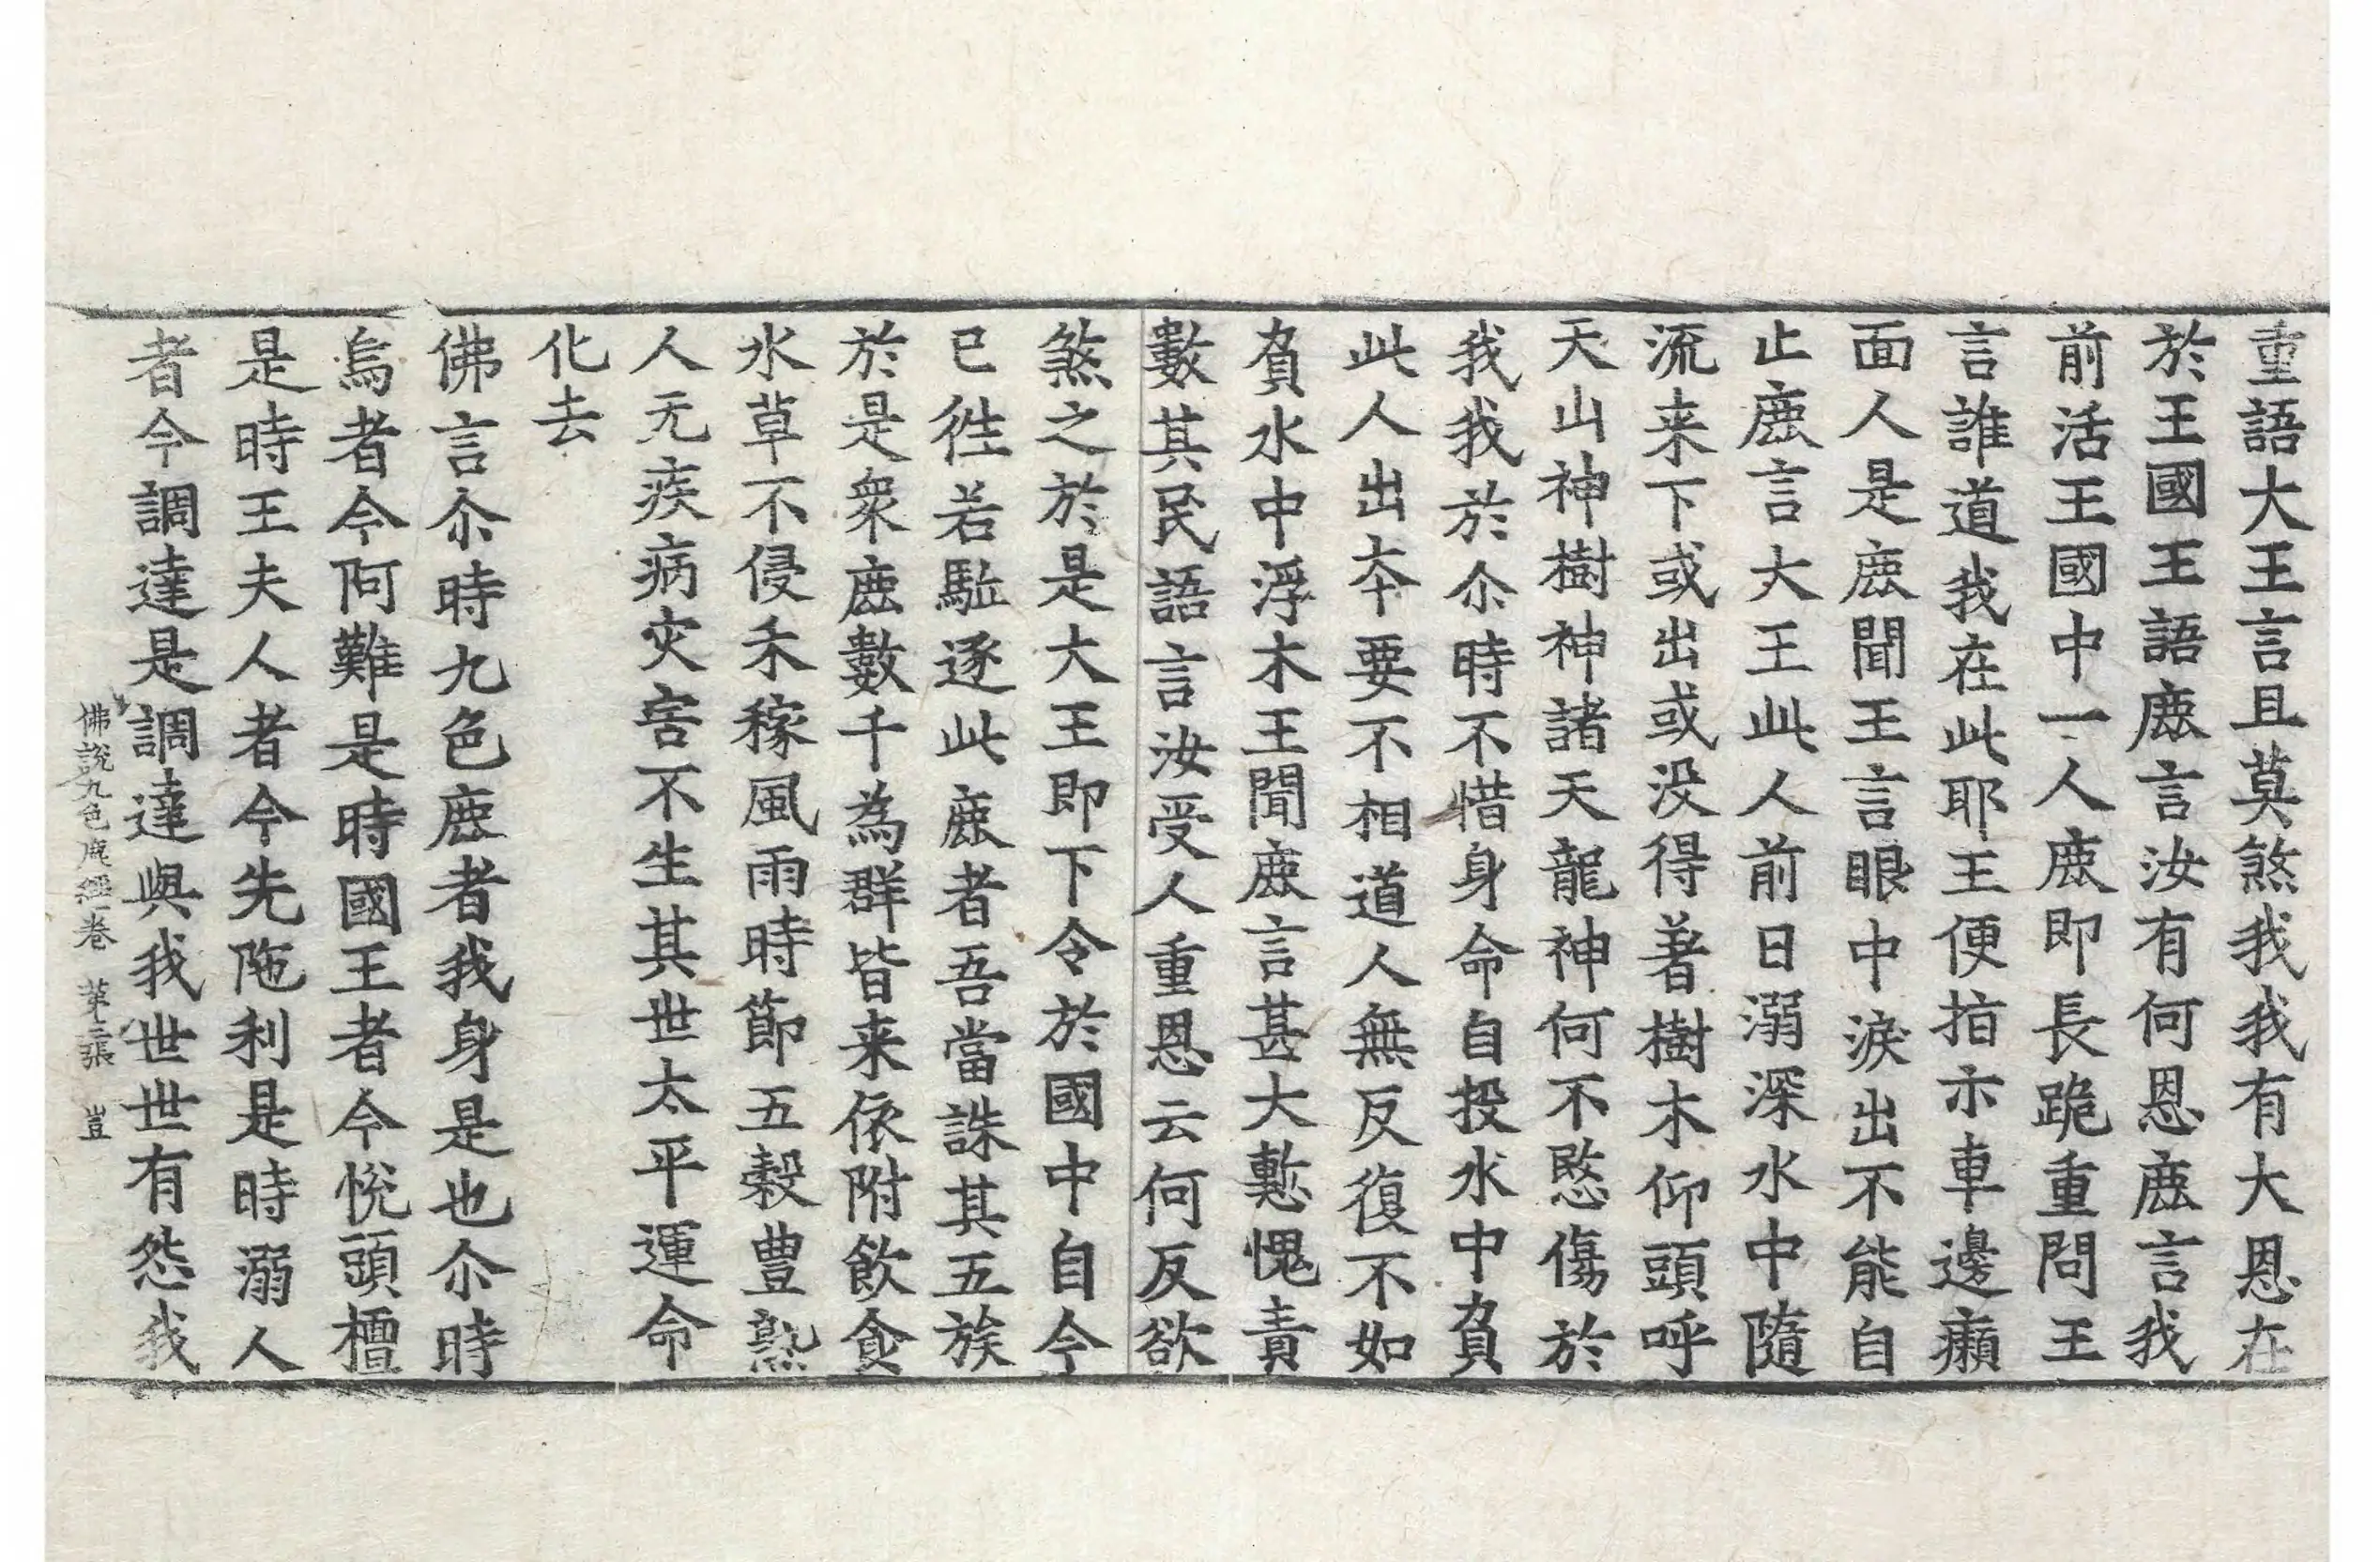 重語大王言且莫煞我我有大恩在
於王國王語鹿言汝有何恩鹿言我
前活王國中一人鹿即長跪重問王
言誰道我在此耶王便指示車邊癩
面人是鹿聞王言眼中淚出不能自
止鹿言大王此人前日溺深水中隨
流来下或出或没得著樹木仰頭呼
天山神樹神諸天龍神何不愍傷於
我我於尒時不惜身命自投水中負
此人出夲要不相道人無反復不如
負水中浮木王聞鹿言甚大慙愧責
數其民語言汝受人重恩云何反欲
煞之於是大王即下令於國中自今
已徃若駈逐此鹿者吾當誅其五族
於是衆鹿數千為群皆来依附飲食
水草不侵禾稼風雨時節五穀豊熟
人无疾病灾害不生其世太平運命
化去
佛言尒時九色鹿者我身是也尒時
烏者今阿難是時國王者今悅頭檀
是時王夫人者今先陁利是時溺人
者今調達是調達與我世世有怨我
佛説九色鹿經一卷 第三張 豈